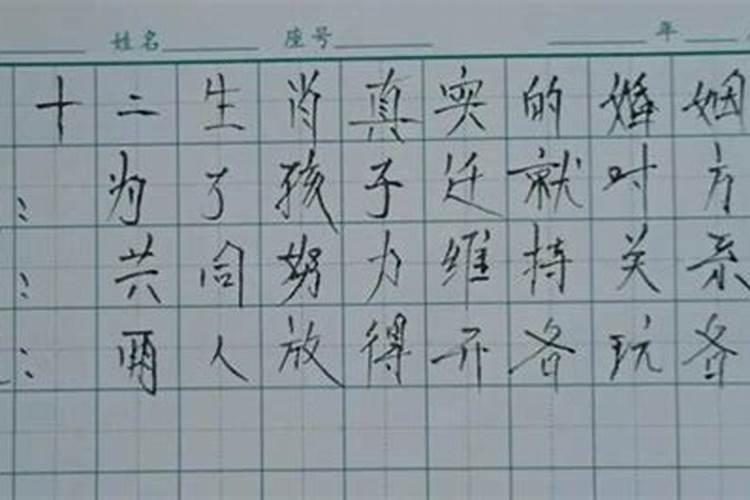 姓名 座号 年
十二生肖真实的婚姻
：为了孩子迁就对方
：共同努力维持关系
：两人放得开各玩各